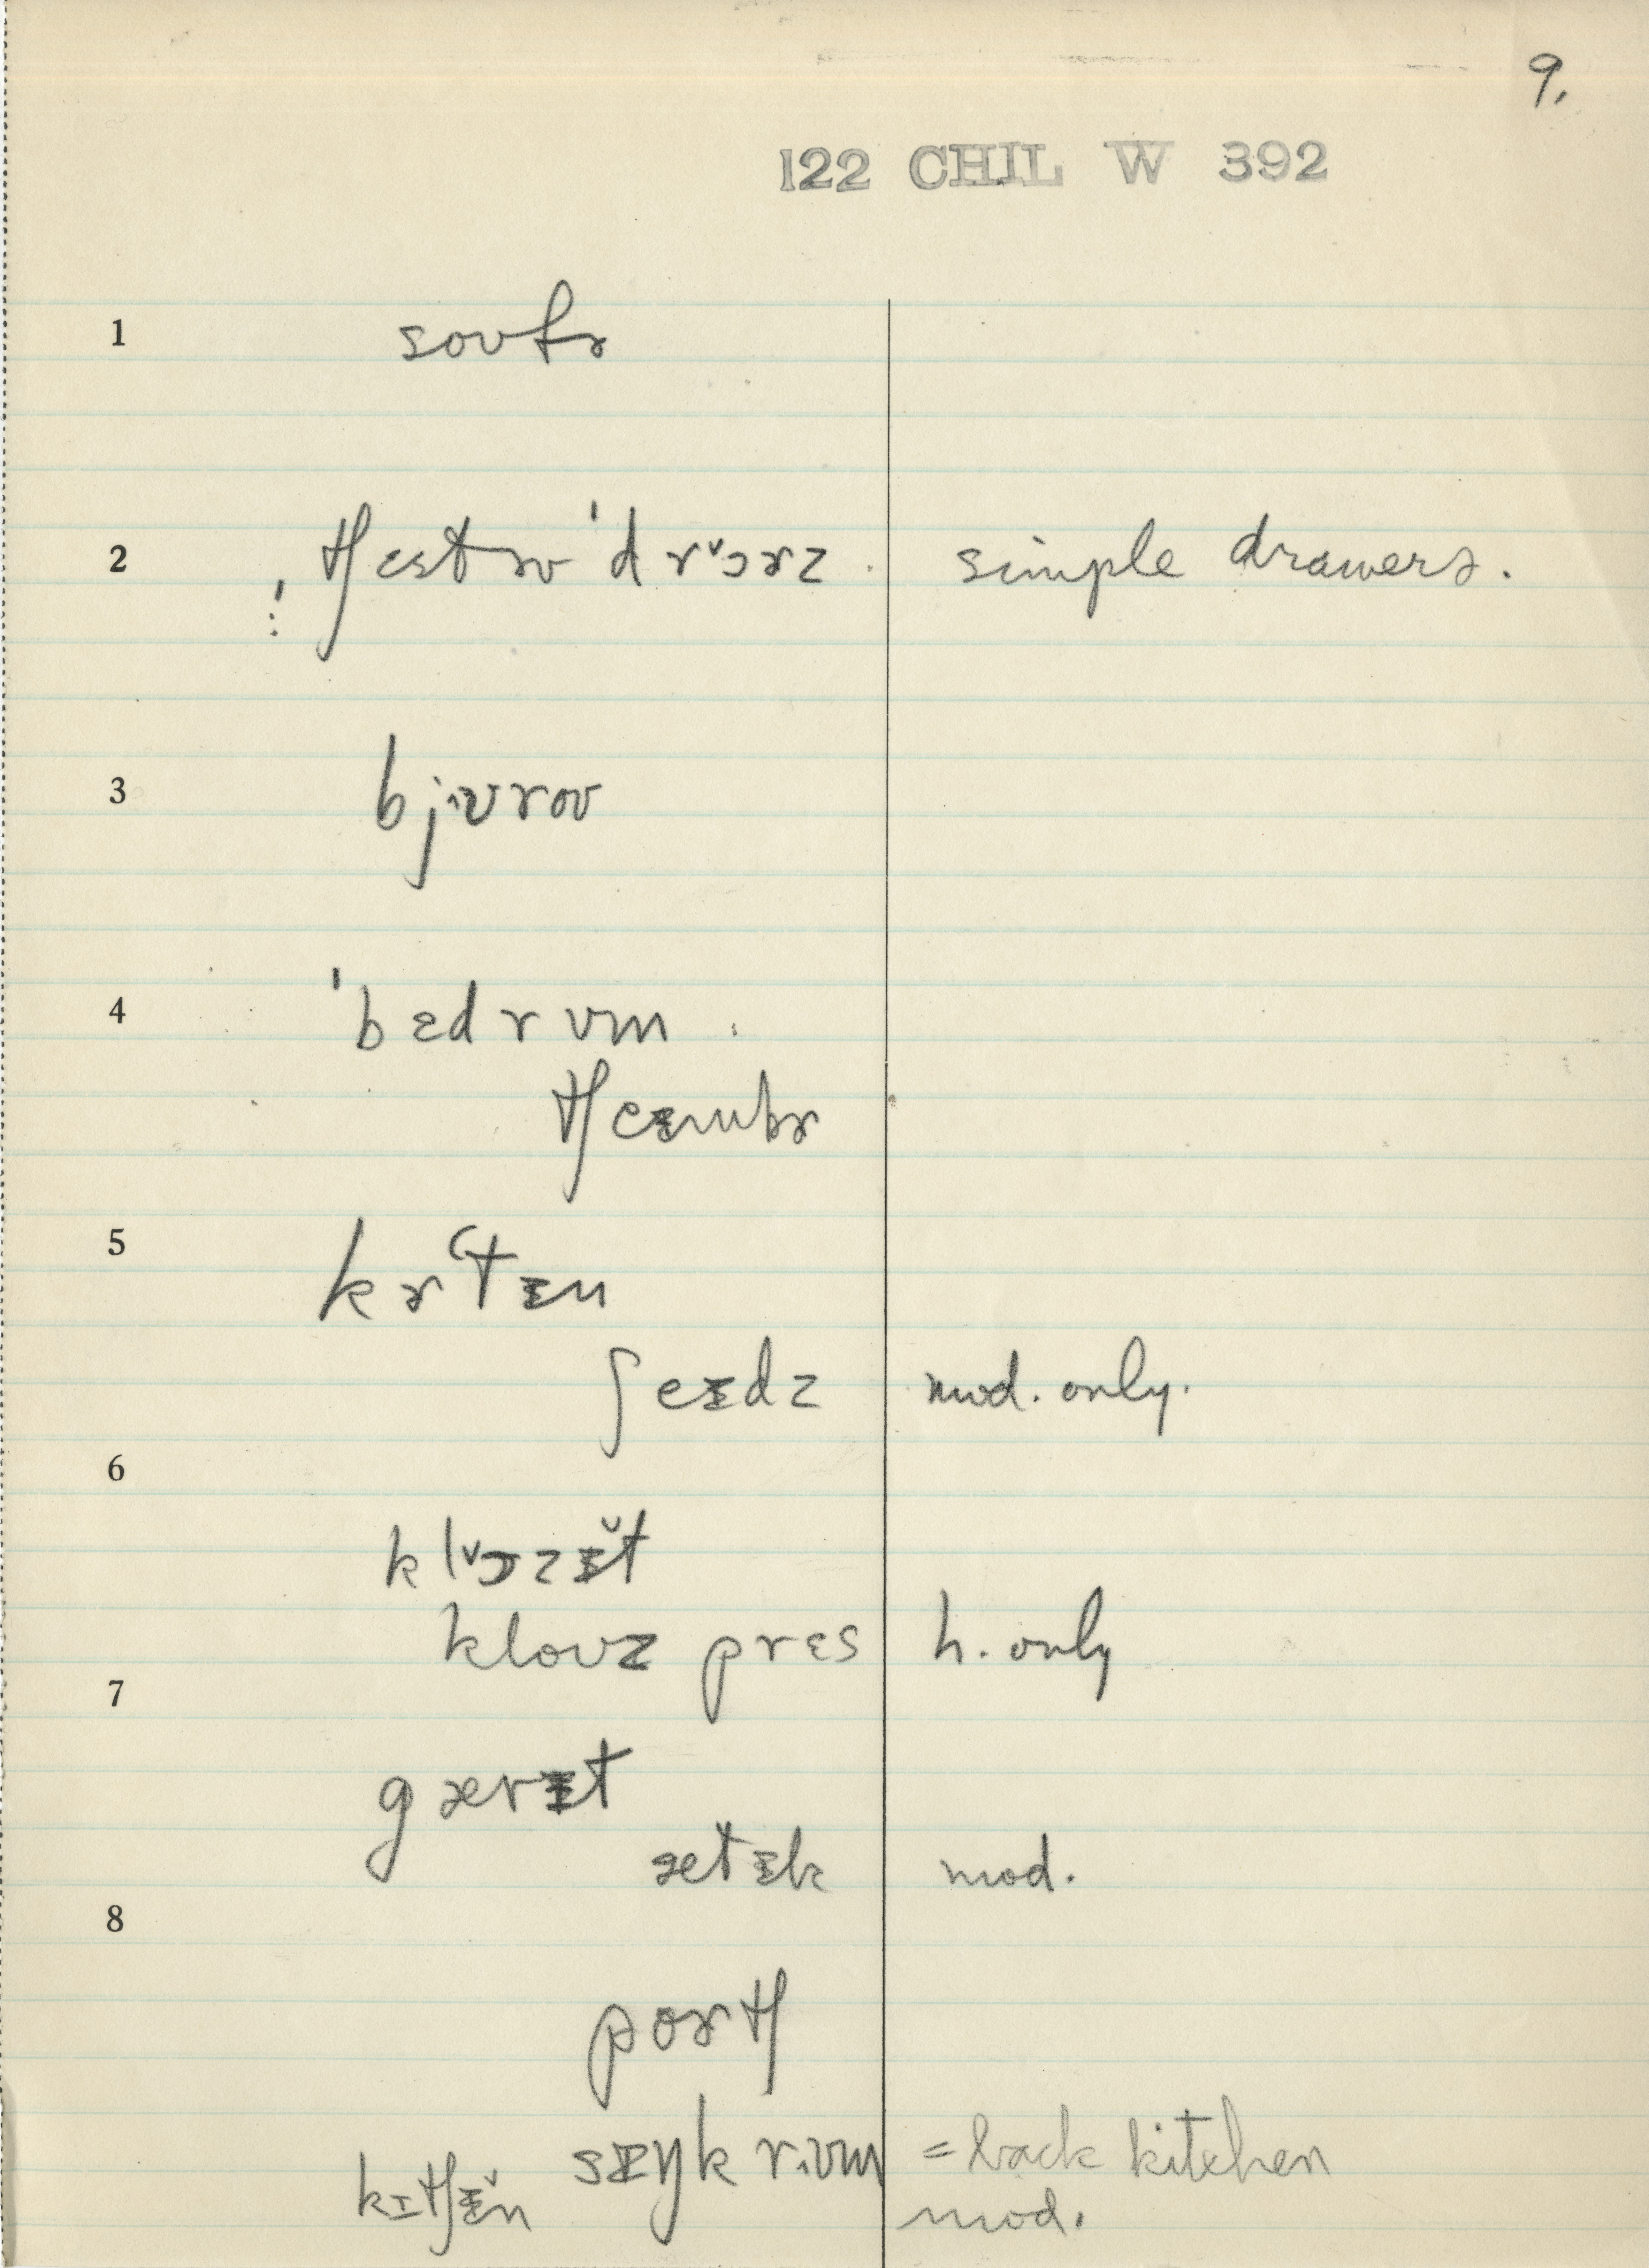 9.
122 CHIL W 392
1 soʊfɚ
2 tʃɛstɚv ˈdrᵛɔɚz simple drawers.
3 bjʊroʊ
4 ˈbɛdrʊm
tʃeɪmbɚ
5 kɚtɪn
ʃeɪdz mod. only.
6
klᵛɔzɪ̆t
kloʊz prɛs h. only
7
gærɪt
ætɪk mod.
8
poɚtʃ
sɪŋk rʊm = back kitchen
kɪtʃɪ̆n mod.